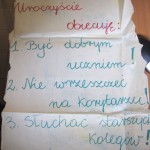 Uroczyście
obiecuję:
1. Być dobrym
uczniem!
2. Nie wrzeszczeć
na korytarzu!
3. Słuchać starszych
kolegów!